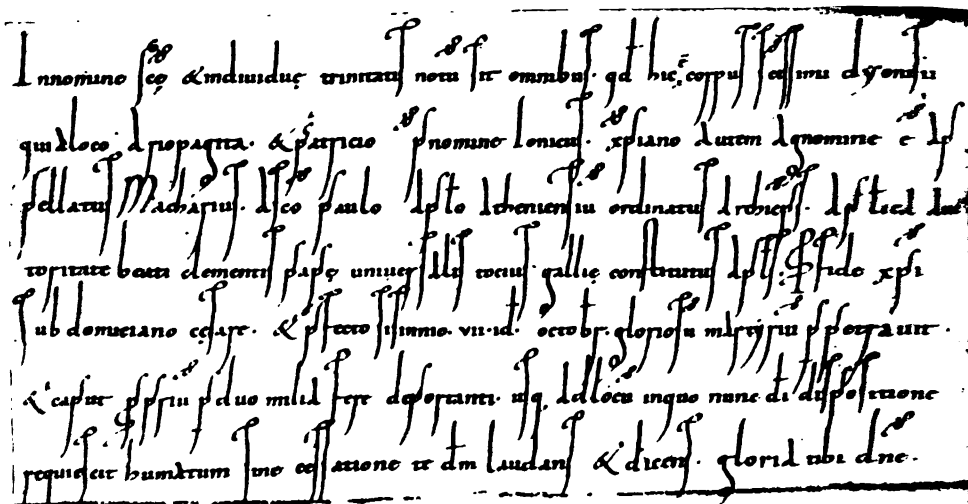 In nomine scę & individuę trinitatis notū sit omnibus. qd hic corpus scissimi dyonisii
qui a loco ariopagita. & patricio pnomine ionicus. xpiano autem agnomine ē ap
pellatus Macharius. a sco paulo apsto atheniensiū ordinatus archieps. apstolica auc
toritate beati clementis papę universalis tocius gallię constitutus apsts. p fide xpi
sub domiciano cesare. & psfecto sisinnio. vii. id. octobr. gloriosū martyriū ppetravit.
& caput ppriū p duo milia fere deportanti usq ad locū in quo nunc di dispositione
requiescit humatum sine cessatione te dm laudans & dicens. gloria tibi dne.